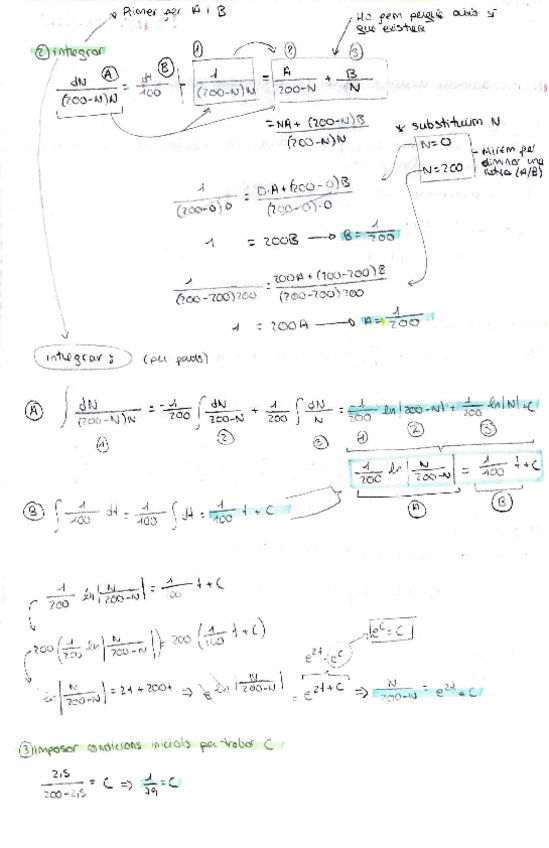 Primer per A i B
Ho fem perquè així sí que existeix
② integrar
dN/(200-N)N = dt/100 Ⓐ Ⓑ
1/(200-N)N = A/(200-N) + B/N ① ② ③
= NA + (200-N)B/(200-N)N
* substituim N
N=0
N=200
Mirem per eliminar una lletra (A/B)
1/(200-0)0 = 0·A+(200-0)B/(200-0)·0
1 = 200B → B = 1/200
1/(200-200)200 = 200A+(200-200)B/(200-200)200
1 = 200A → A = 1/200
integrar: (per parts)
Ⓐ ∫ dN/(200-N)N = -1/200 ∫ dN/200-N + 1/200 ∫ dN/N = -1/200 ln|200-N| + 1/200 ln|N| + C
① ② ③ ① ② ③
1/200 ln|N/200-N| = 1/100 t + C
Ⓐ Ⓑ
Ⓑ ∫ 1/100 dt = 1/100 ∫ dt = 1/100 t + C
1/200 ln|N/200-N| = 1/100 t + C
200(1/200 ln|N/200-N|) = 200(1/100 t + C)
e^2t · e^C
e^C = C
ln|N/200-N| = 2t + 200t ⇒ e^ln|N/200-N| = e^2t+C ⇒ N/200-N = e^2t + C
③ imposar condicions inicials per trobar C
2,5/200-2,5 = C ⇒ 1/79 = C